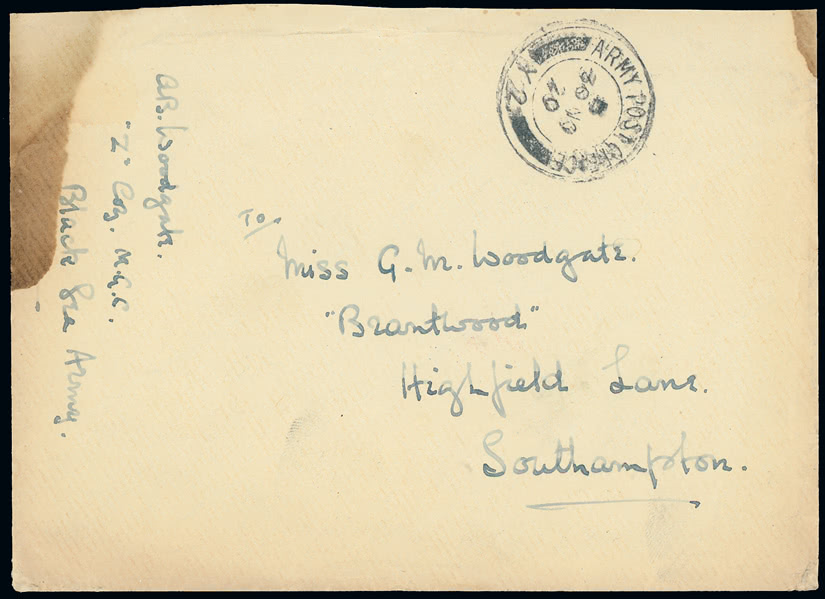 A.B. Woodgate.
"Z" Coy. M.G.C.
Black Sea Army.
ARMY POST OFFICE
Y 2
To/
Miss G. M. Woodgate.
"Brantwood"
Highfield Lane.
Southampton.